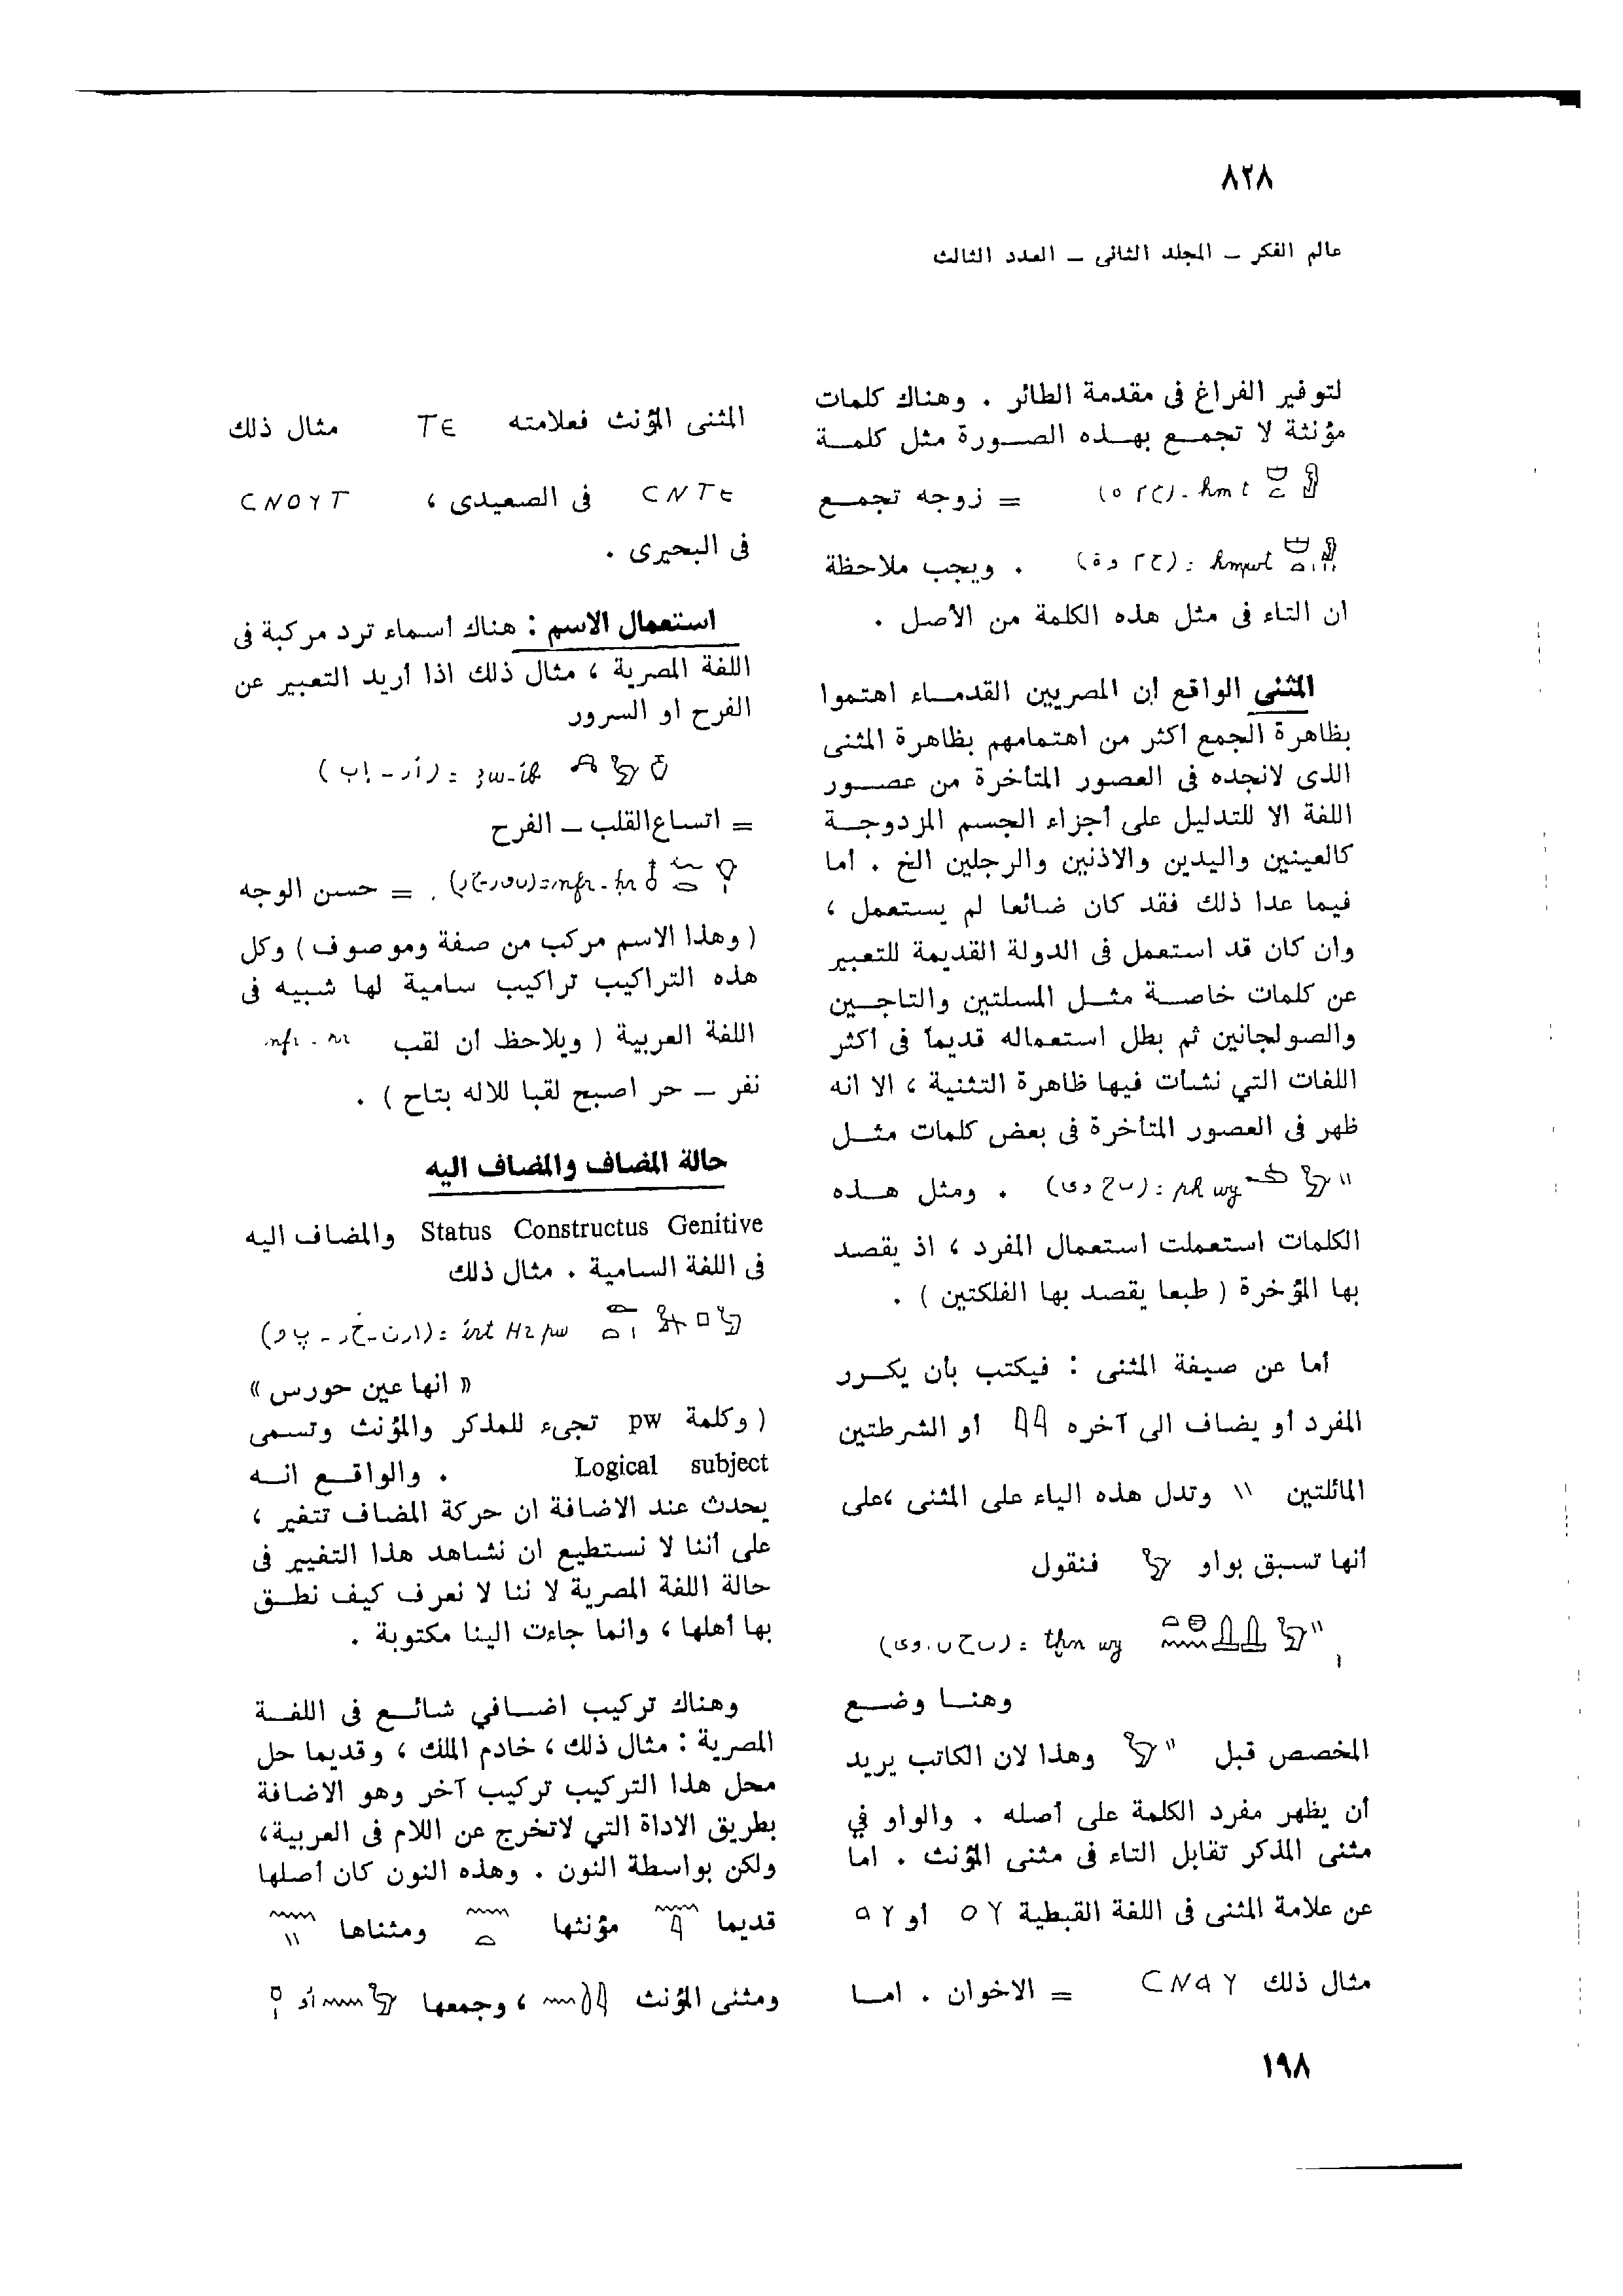 ٨٢٨
عالم الفكر ــ المجلد الثاني ــ العدد الثالث
لتوفير الفراغ فى مقدمة الطائر . وهناك كلمات
مؤنثة لا تجمع بهذه الصورة مثل كلمة
hmt = زوجه تجمع
hmwt . ويجب ملاحظة
ان التاء فى مثل هذه الكلمة من الأصل .
المثنى الواقع أن المصريين القدماء اهتموا
بظاهرة الجمع أكثر من اهتمامهم بظاهرة المثنى
الذى لانجده فى العصور المتأخرة من عصور
اللغة الا للتدليل على أجزاء الجسم المزدوجة
كالعينين واليدين والاذنين والرجلين الخ . أما
فيما عدا ذلك فقد كان ضائعا لم يستعمل ،
وان كان قد استعمل فى الدولة القديمة للتعبير
عن كلمات خاصة مثل المسلتين والتاجين
والصولجانين ثم بطل استعماله قديماً فى أكثر
اللغات التي نشأت فيها ظاهرة التثنية ، الا انه
ظهر فى العصور المتأخرة فى بعض كلمات مثل
ph wy . ومثل هذه
الكلمات استعملت استعمال المفرد ، اذ يقصد
بها المؤخرة ( طبعا يقصد بها الفلكتين ) .
أما عن صيغة المثنى : فيكتب بأن يكرر
المفرد أو يضاف الى آخره 𓇋𓇋 أو الشرطتين
المائلتين \\ وتدل هذه الياء على المثنى ،على
أنها تسبق بواو 𓅱 فنقول
tḫn wy
وهنا وضع
المخصص قبل 𓅱 \\ وهذا لان الكاتب يريد
أن يظهر مفرد الكلمة على أصله . والواو في
مثنى المذكر تقابل التاء فى مثنى المؤنث . اما
عن علامة المثنى فى اللغة القبطية ⲟⲩ أو ⲁⲩ
مثال ذلك ⲤⲚⲀⲨ = الاخوان . اما
١٩٨
المثنى المؤنث فعلامته ⲦⲈ مثال ذلك
ⲤⲚⲦⲈ فى الصعيدى ، ⲤⲚⲞⲨⲦ
فى البحيرى .
استعمال الاسم : هناك أسماء ترد مركبة فى
اللغة المصرية ، مثال ذلك اذا أريد التعبير عن
الفرح او السرور
ꜣw-ib = (أر - إب)
= اتساع القلب ــ الفرح
nfr-hr . = حسن الوجه
( وهذا الاسم مركب من صفة وموصوف ) وكل
هذه التراكيب تراكيب سامية لها شبيه فى
اللغة العربية ( ويلاحظ أن لقب nfr - hr
نفر ــ حر اصبح لقبا للاله بتاح ) .
حالة المضاف والمضاف اليه
Status Constructus Genitive والمضاف اليه
فى اللغة السامية . مثال ذلك
irt Hr pw
« انها عين حورس »
( وكلمة pw تجىء للمذكر والمؤنث وتسمى
Logical subject . والواقع انه
يحدث عند الاضافة ان حركة المضاف تتغير ،
على أننا لا نستطيع ان نشاهد هذا التغيير فى
حالة اللغة المصرية لا ننا لا نعرف كيف نطق
بها أهلها ، وانما جاءت الينا مكتوبة .
وهناك تركيب اضافي شائع فى اللغة
المصرية : مثال ذلك ، خادم الملك ، وقديما حل
محل هذا التركيب تركيب آخر وهو الاضافة
بطريق الاداة التي لاتخرج عن اللام فى العربية،
ولكن بواسطة النون . وهذه النون كان أصلها
قديما 𓈖𓇋 مؤنثها 𓈖𓏏 ومثناها 𓈖 \\
ومثنى المؤنث 𓈖𓇋𓇋 ، وجمعها 𓈖𓅱 أو 𓏌